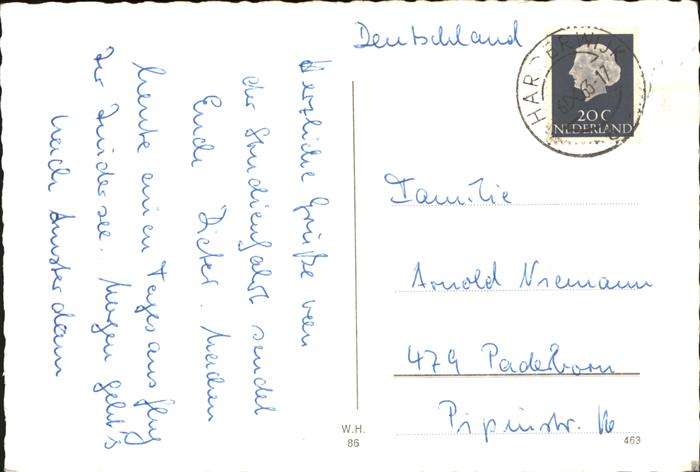 Deutschland
HARDERWIJK
20 C
NEDERLAND
Herzliche Grüße von
der Studienfahrt sendet
Euch Dieter. Machen
heute einen Tagesausflug
zur Zuidersee. Morgen geht's
nach Amsterdam
Familie
Arnold Niemann
479 Paderborn
Pipinstr. 16
W.H.
86
463